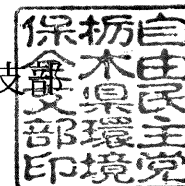 自由民主党
栃木県環境
保全支部印
支部